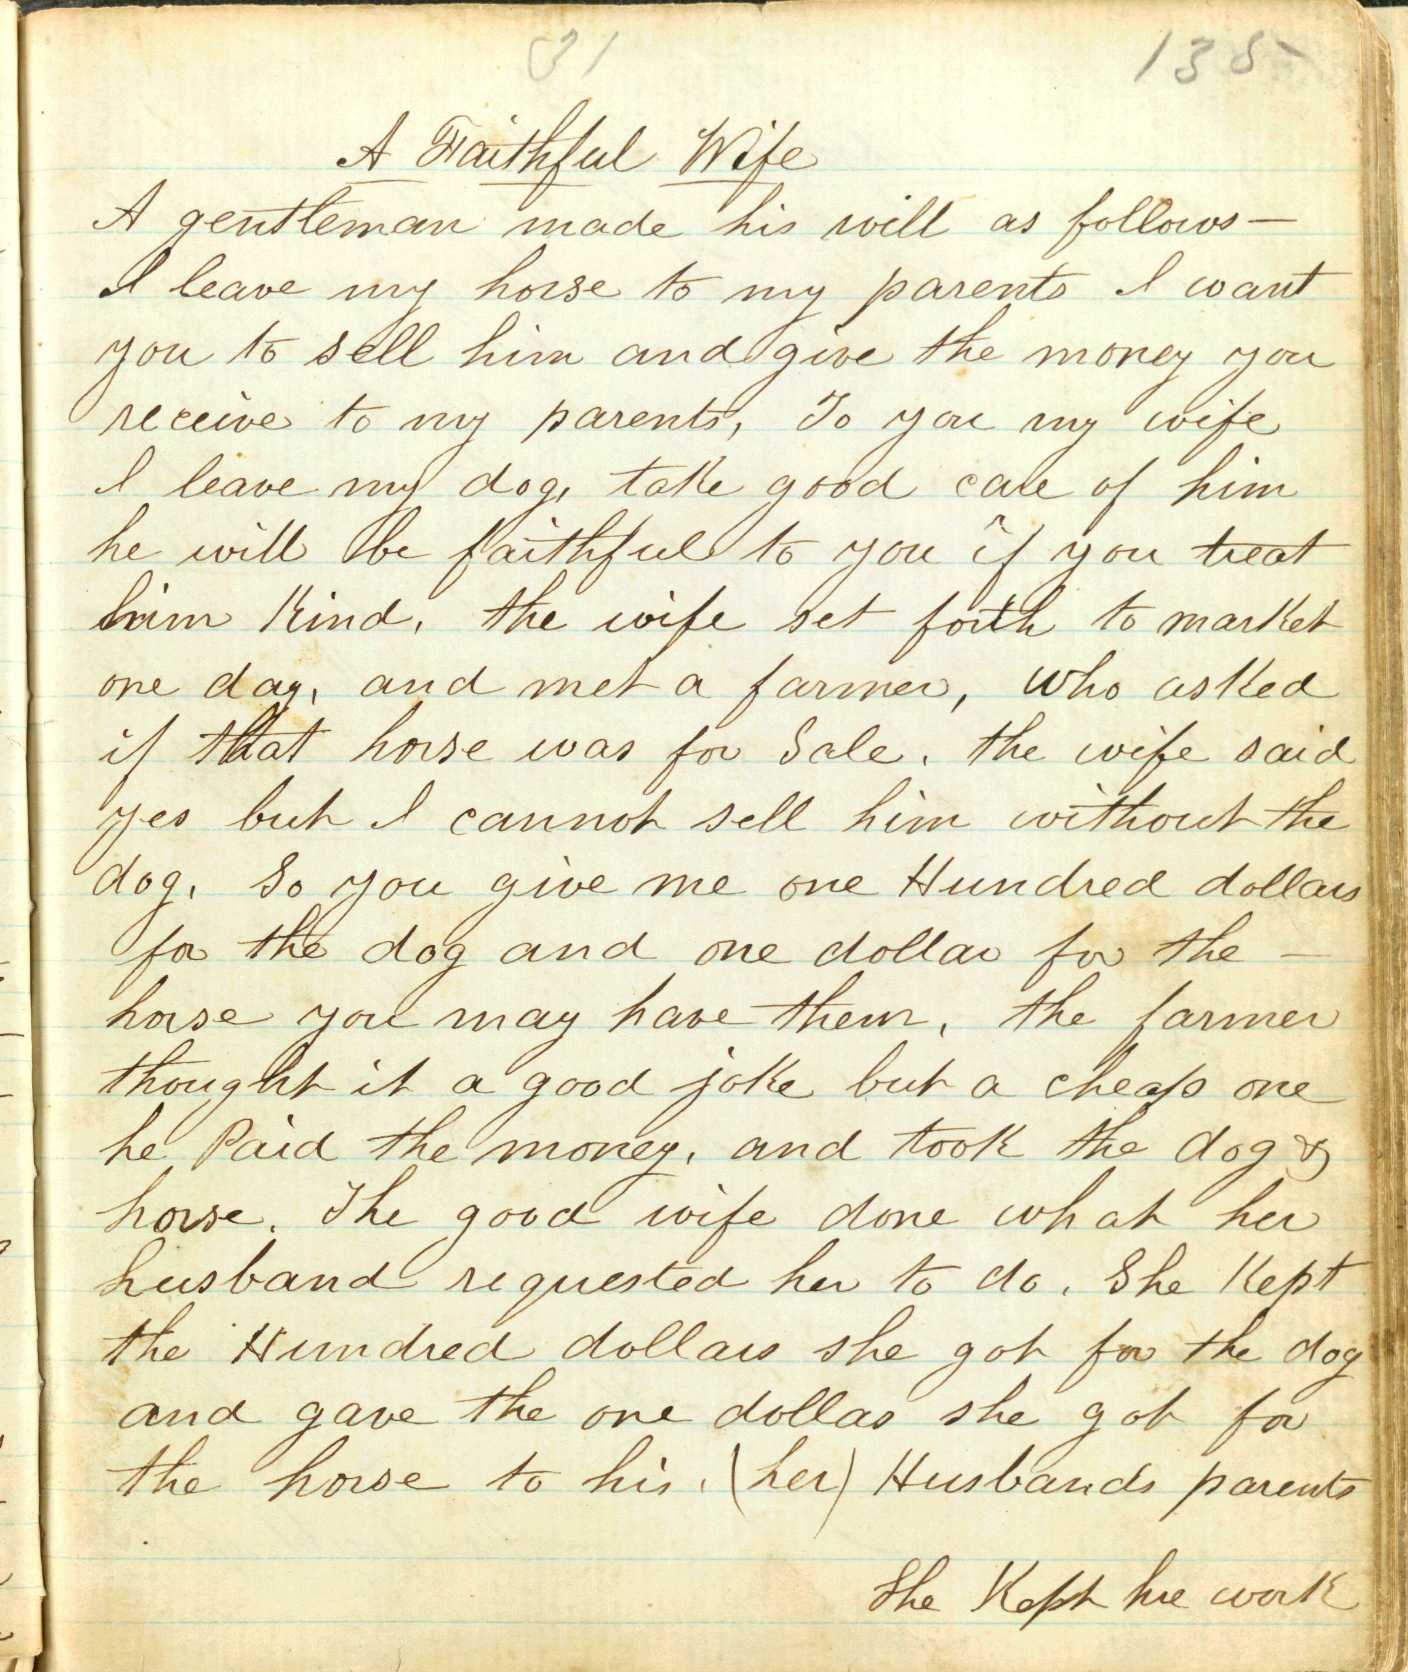 31 135
A Faithful Wife
A gentleman made his will as follows—
I leave my horse to my parents I want
you to sell him and give the money you
receive to my parents, To you my wife
I leave my dog, take good care of him
he will be faithful to you if you treat
him Kind, the wife set forth to market
one day, and met a farmer, who asked
if that horse was for Sale, the wife said
yes but I cannot sell him without the
dog, So you give me one Hundred dollars
for the dog and one dollar for the —
horse you may have them, the farmer
thought it a good joke but a cheap one
he Paid the money, and took the dog &
horse. The good wife done what her
husband requested her to do, She Kept
the Hundred dollars she got for the dog
and gave the one dollar she got for
the horse to his, (her) Husbands parents
She Kept hre work